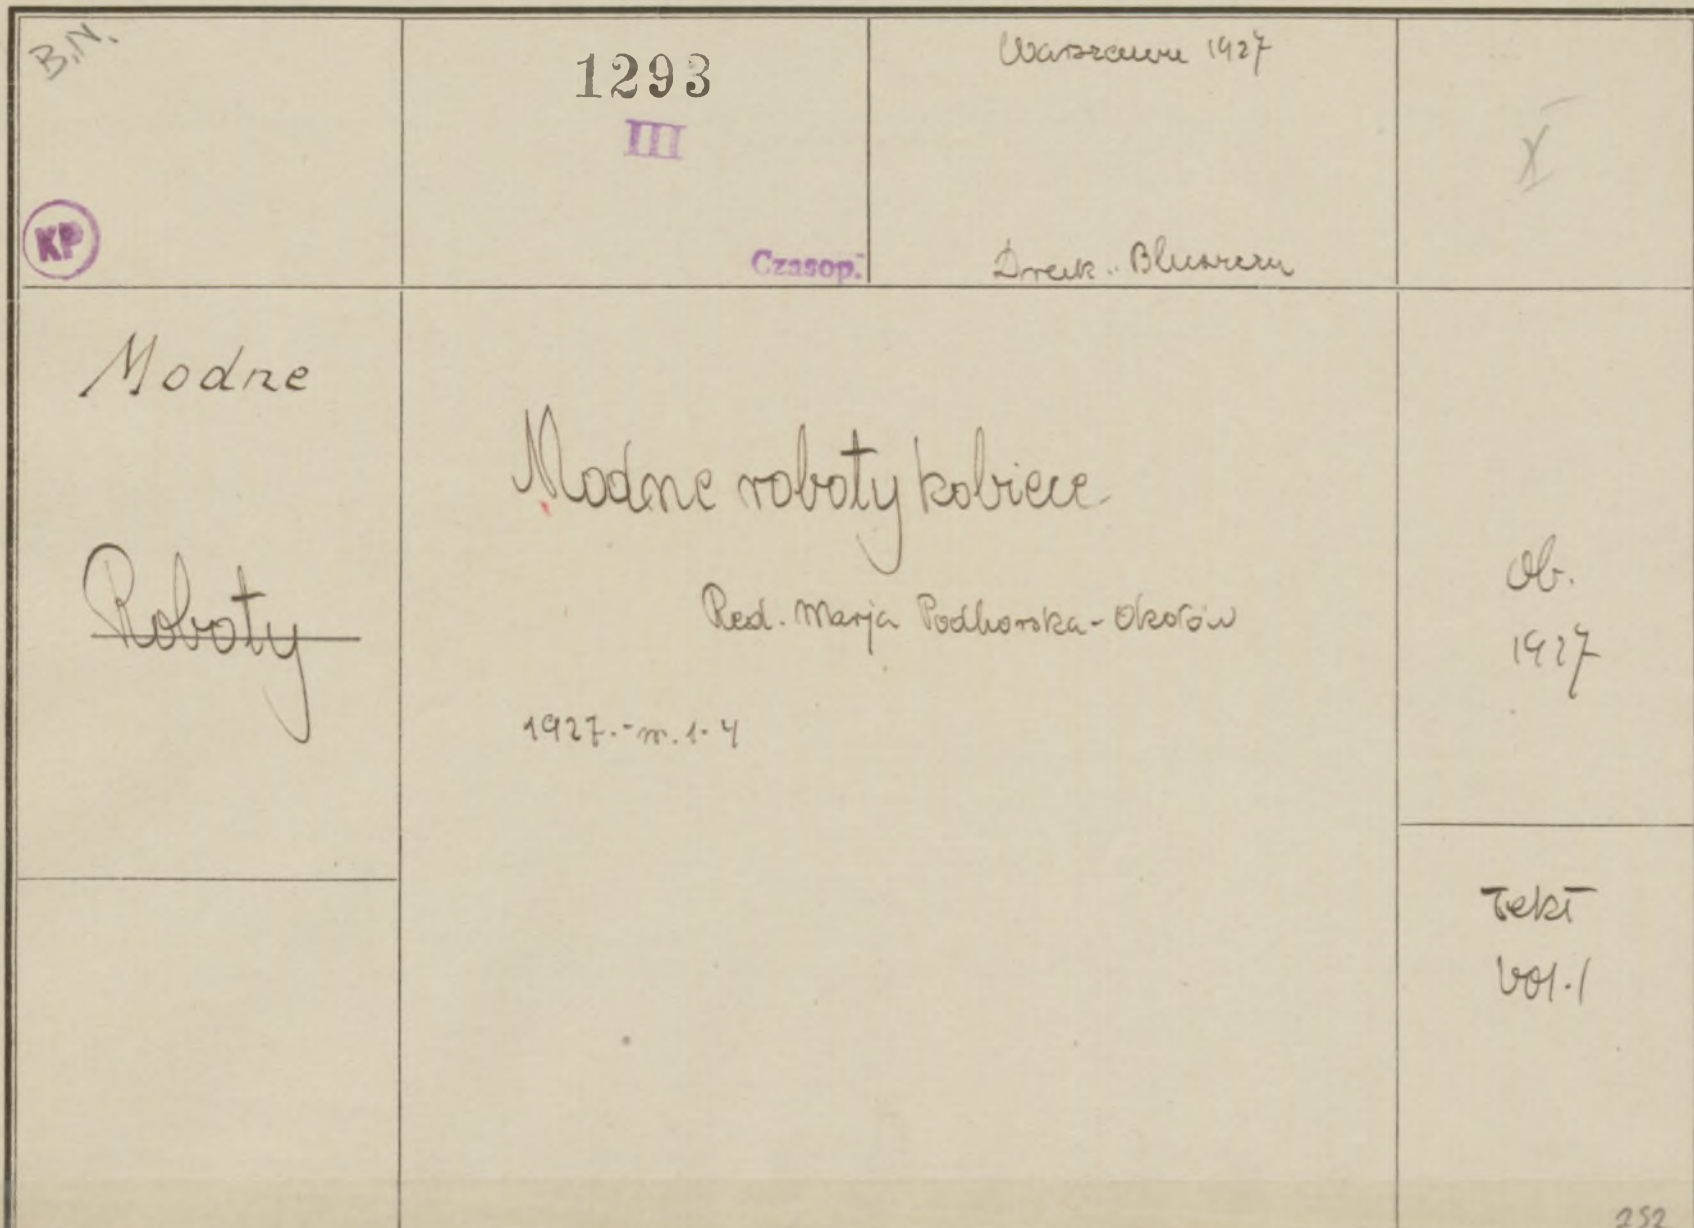 B.N.
KP
1293
III
Czasop.
Warszawa 1927
Druk. Bluszczu
X
Modne
Roboty
Modne roboty kobiece
Red. Marja Podhorska-Okołów
1927.-nr. 1-4
Ob.
1927
Tekt
vol. 1
252